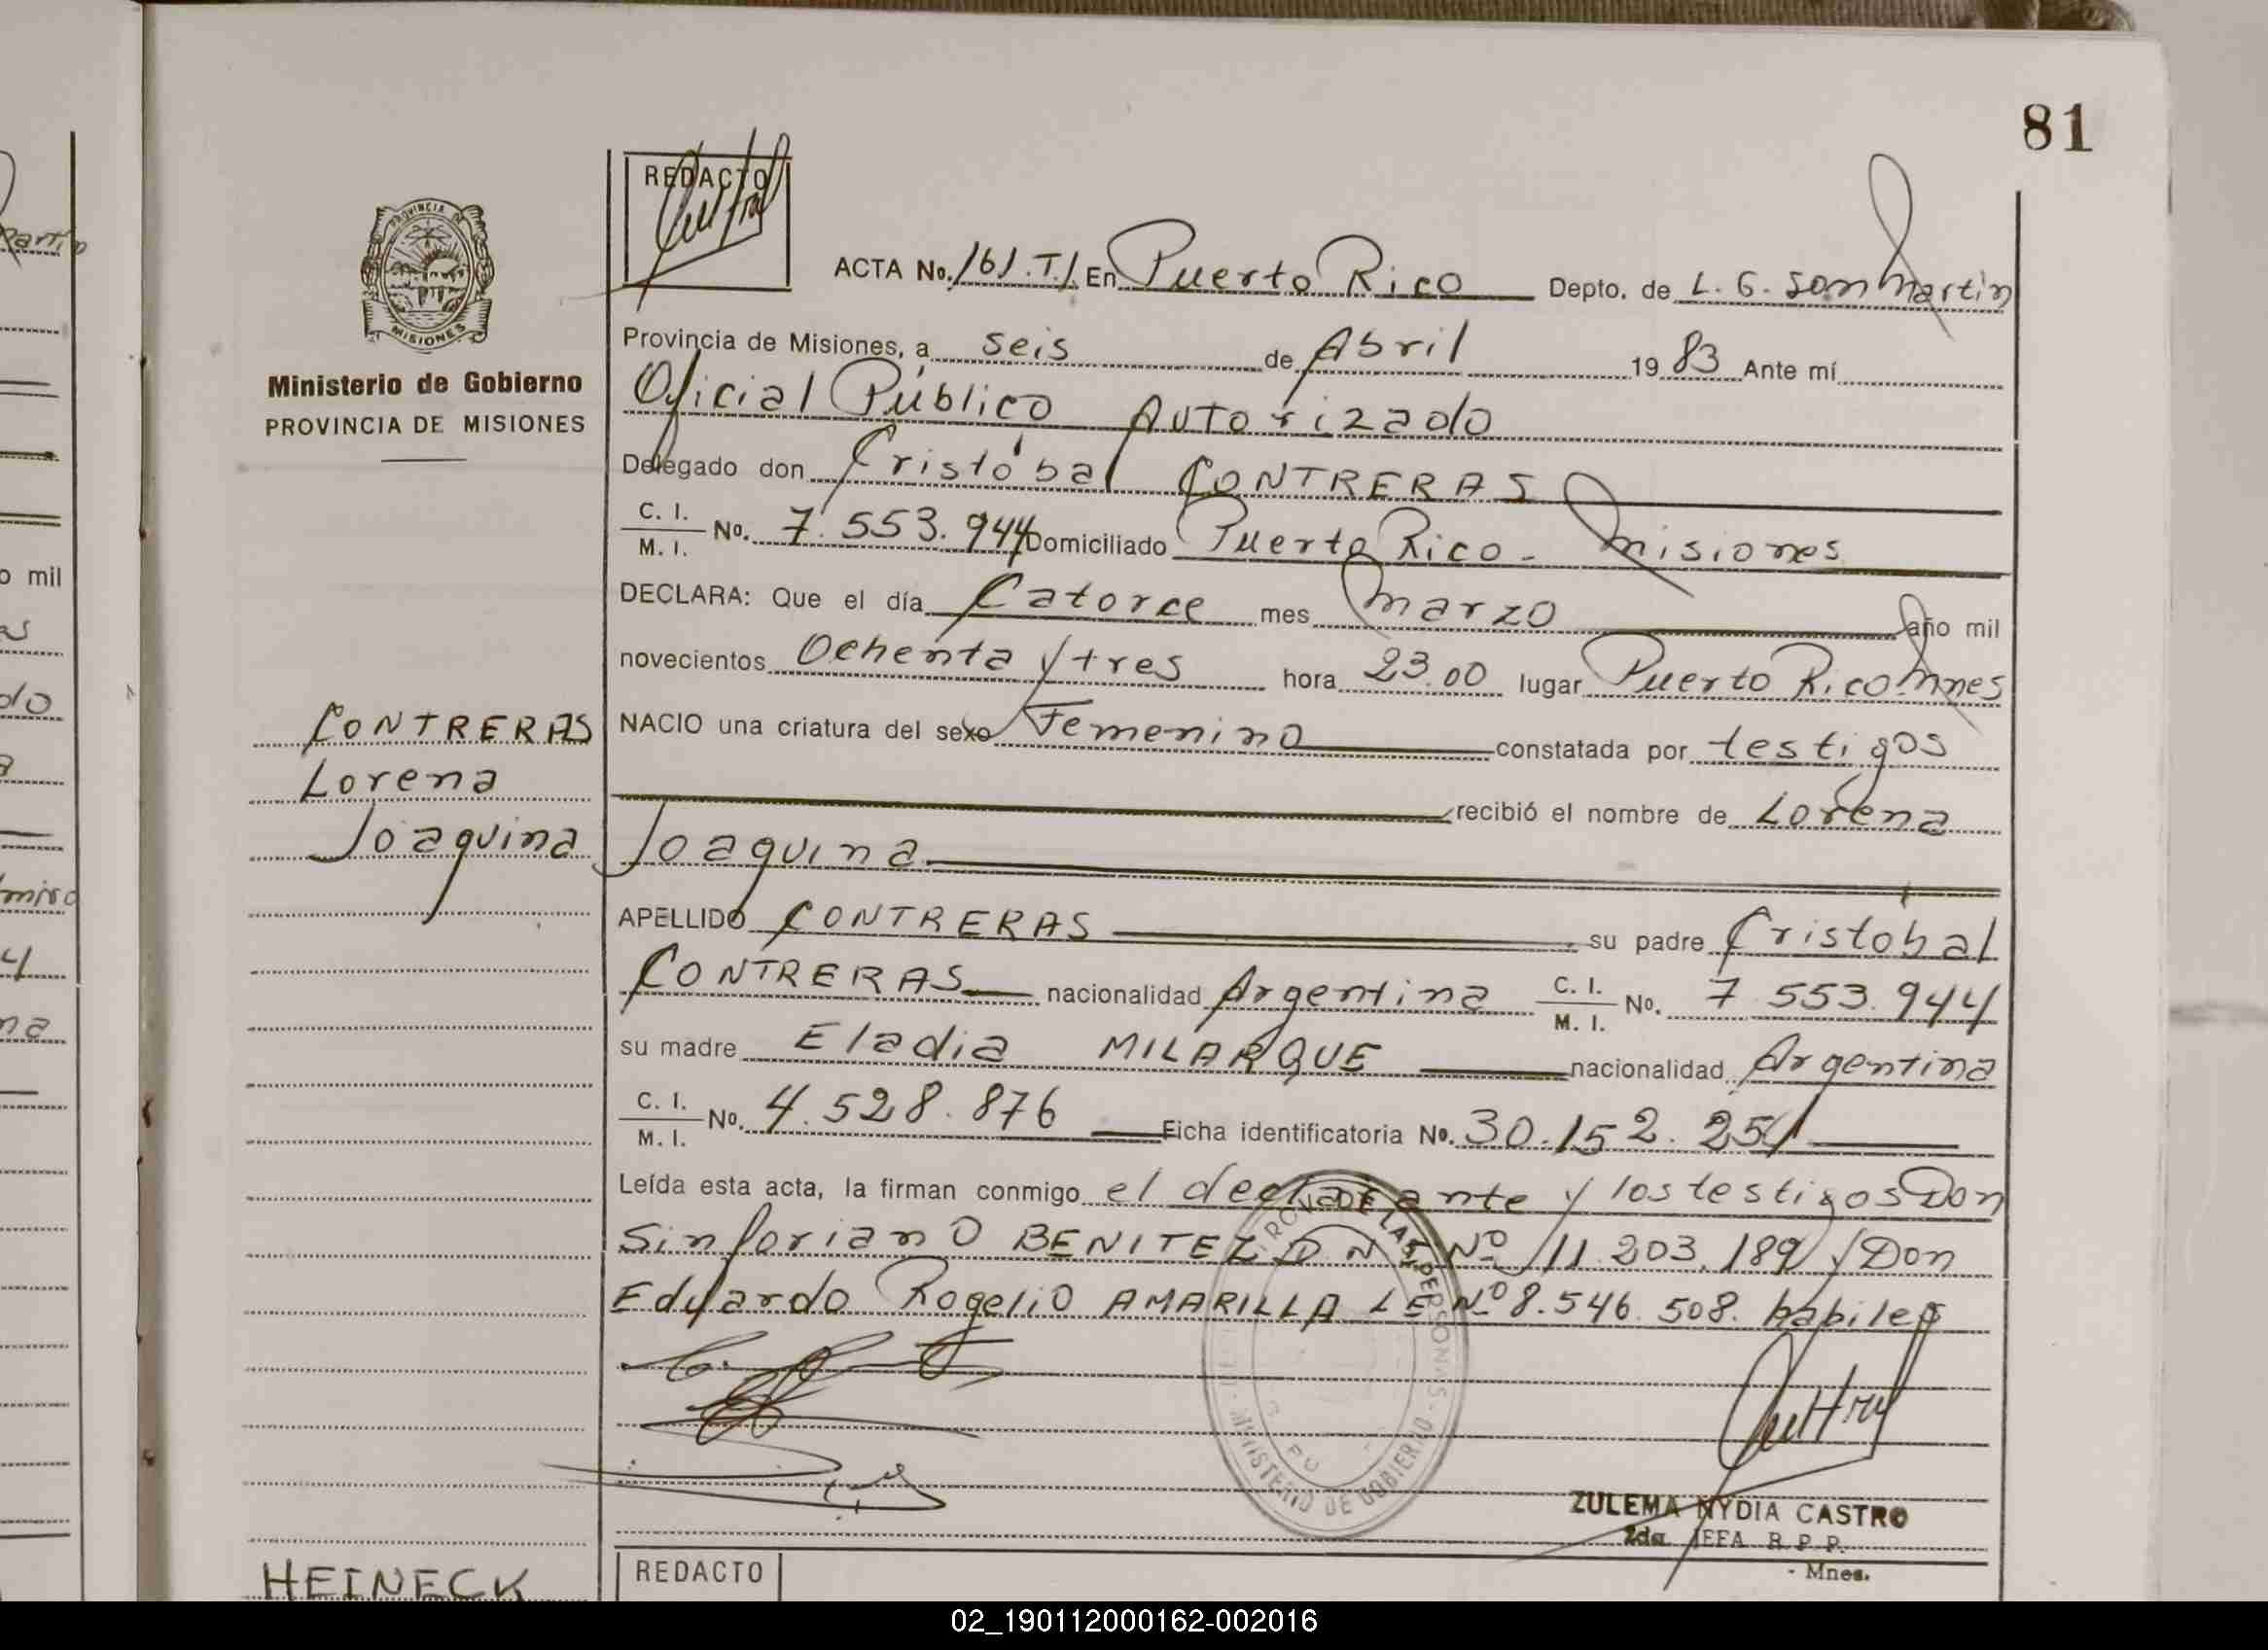 81
REDACTO
ACTA No. 161.T.I. En Puerto Rico Depto. de L. G. San Martin
PROVINCIA DE
MISIONES
Provincia de Misiones, a seis de Abril 1983 Ante mí
Ministerio de Gobierno
PROVINCIA DE MISIONES
Oficial Público Autorizado
Delegado don Cristóbal CONTRERAS
C. I. / M. I. No. 7.553.944 Domiciliado Puerto Rico - Misiones
DECLARA: Que el día Catorce mes marzo año mil
novecientos Ochenta y tres hora 23.00 lugar Puerto Rico Mnes
CONTRERAS
Lorena
Joaquina
NACIO una criatura del sexo Femenino constatada por testigos
recibió el nombre de Lorena
Joaquina
APELLIDO CONTRERAS su padre Cristóbal
CONTRERAS nacionalidad Argentina C. I. / M. I. No. 7.553.944
su madre Eladia MILARQUE nacionalidad Argentina
C. I. / M. I. No. 4.528.876 Ficha identificatoria No. 30.152.251
Leída esta acta, la firman conmigo el declarante y los testigos Don
Sinforiano BENITEZ D N I Nº 11.203.189 y Don
Eduardo Rogelio AMARILLA LE Nº 8.546.508. habiles
DE LAS PERSONAS
MINISTERIO DE GOBIERNO
ZULEMA NYDIA CASTRO
2da. JEFA R. P. P.
- Mnes.
HEINECK
REDACTO
02_190112000162-002016